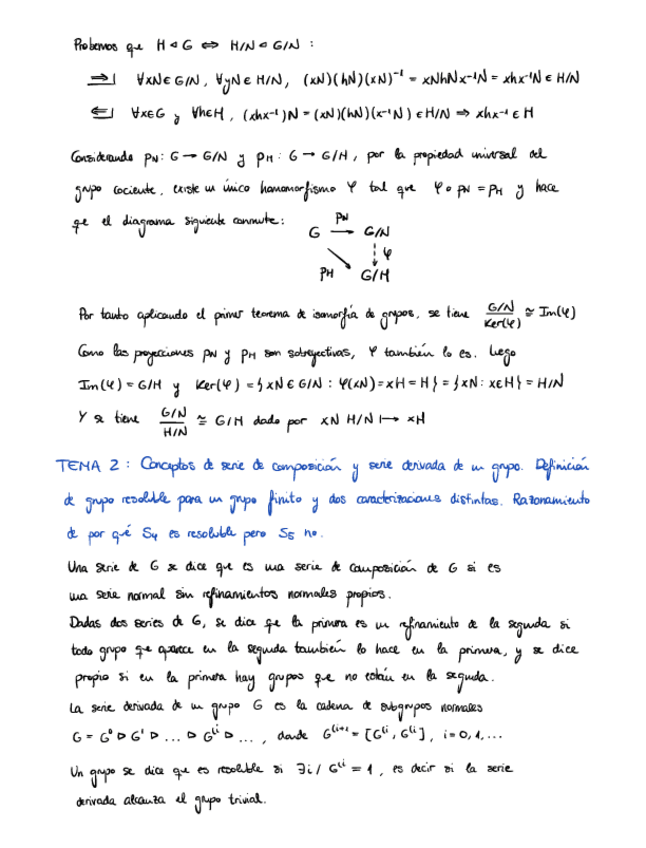 Probemos que H ◁ G ⟺ H/N ◁ G/N :
⟹| ∀xN ∈ G/N, ∀yN ∈ H/N, (xN)(hN)(xN)⁻¹ = xNhNx⁻¹N = xhx⁻¹N ∈ H/N
⟸| ∀x∈G y ∀h∈H, (xhx⁻¹)N = (xN)(hN)(x⁻¹N) ∈ H/N ⟹ xhx⁻¹ ∈ H
Considerando pN: G → G/N y pH: G → G/H, por la propiedad universal del
grupo cociente, existe un único homomorfismo φ tal que φ∘pN = pH y hace
que el diagrama siguiente conmute:
G pN → G/N
pH φ
G/H
Por tanto aplicando el primer teorema de isomorfía de grupos, se tiene (G/N)/Ker(φ) ≅ Im(φ)
Como las proyecciones pN y pH son sobreyectivas, φ también lo es. Luego
Im(φ) = G/H y Ker(φ) = {xN ∈ G/N : φ(xN) = xH = H} = {xN : x∈H} = H/N
Y se tiene (G/N)/(H/N) ≅ G/H dado por xN H/N ↦ xH
TEMA 2 : Conceptos de serie de composición y serie derivada de un grupo. Definición
de grupo resoluble para un grupo finito y dos caracterizaciones distintas. Razonamiento
de por qué S₄ es resoluble pero S₅ no.
Una serie de G se dice que es una serie de composición de G si es
una serie normal sin refinamientos normales propios.
Dadas dos series de G, se dice que la primera es un refinamiento de la segunda si
todo grupo que aparece en la segunda también lo hace en la primera, y se dice
propio si en la primera hay grupos que no están en la segunda.
La serie derivada de un grupo G es la cadena de subgrupos normales
G = G⁰ ▷ G¹ ▷ ... ▷ G⁽ⁱ ▷ ..., donde G⁽ⁱ⁺¹ = [G⁽ⁱ, G⁽ⁱ], i = 0, 1, ...
Un grupo se dice que es resoluble si ∃i / G⁽ⁱ = 1, es decir si la serie
derivada alcanza el grupo trivial.